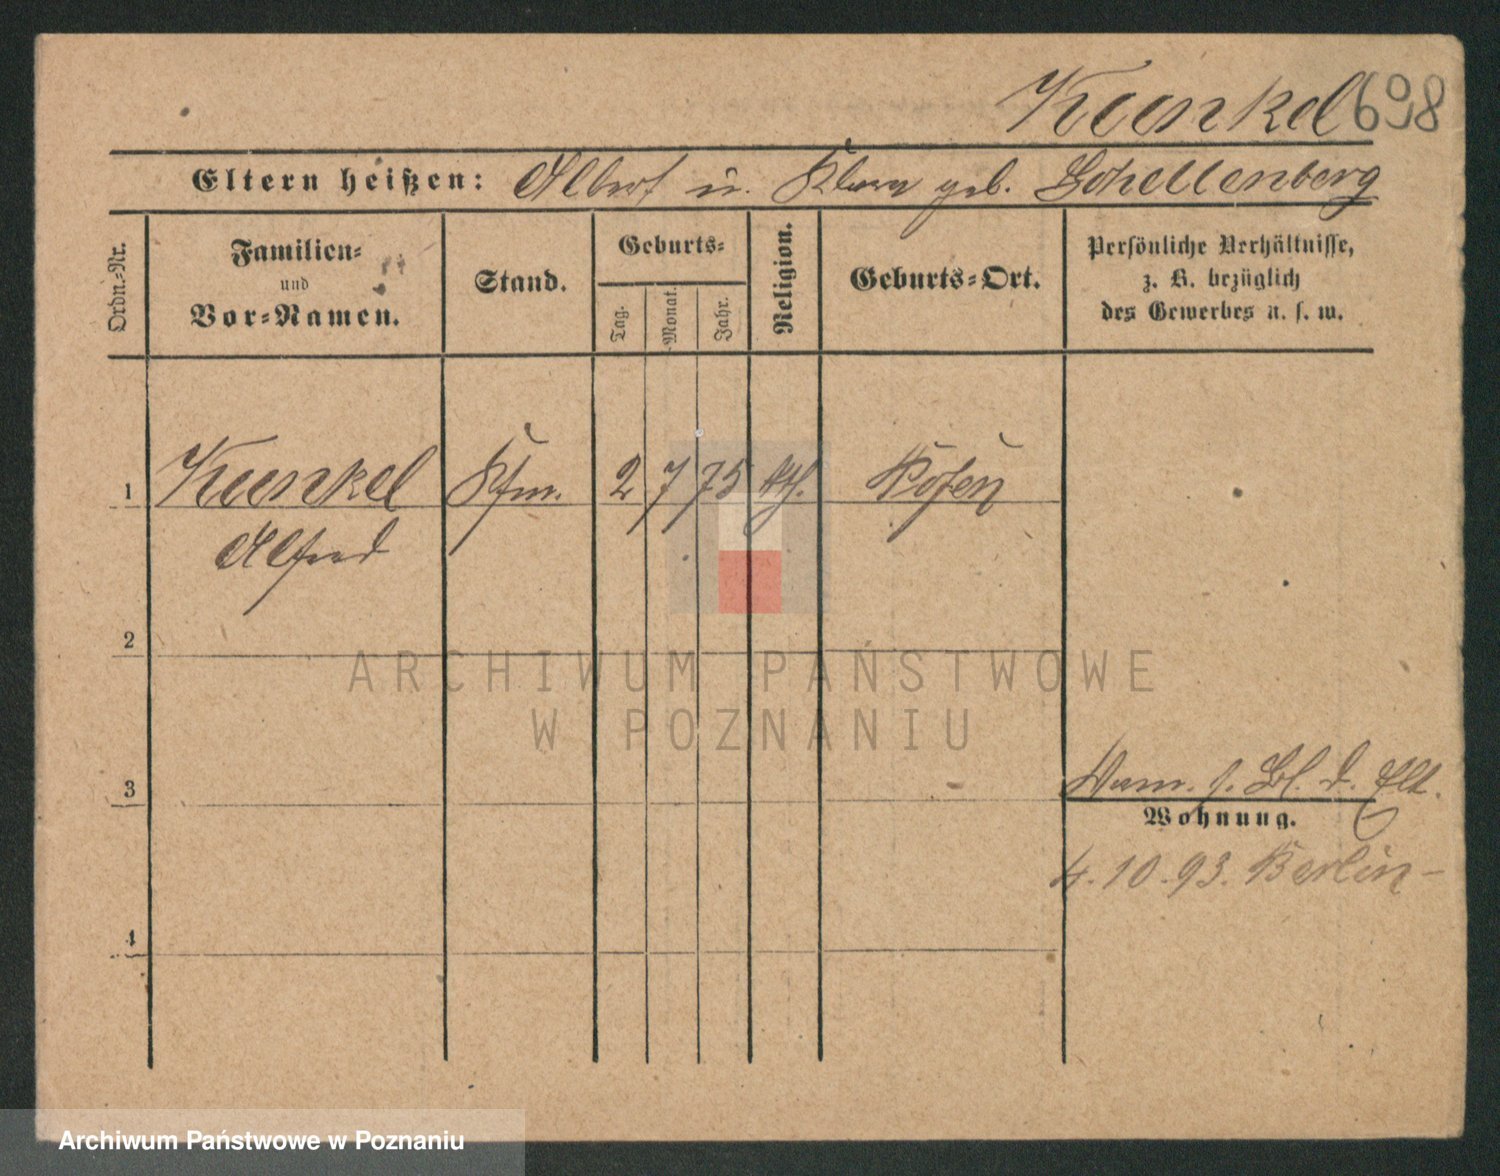 Kunkel 698
Eltern heißen: Albert u. Klara geb. Schellenberg
Ordn.-Nr.
Familien-
und
Vor-Namen.
Stand.
Geburts-
Tag.
Monat.
Jahr.
Religion.
Geburts-Ort.
Persönliche Verhältnisse,
z. B. bezüglich
des Gewerbes u. s. w.
1 Kunkel Kfm. 2 7 75 kth. Posen
Alfred
2
ARCHIWUM PAŃSTWOWE
W POZNANIU
3
s. Bl. d. Elt.
Wohnung.
4.10.93. Berlin-
4
Archiwum Państwowe w Poznaniu